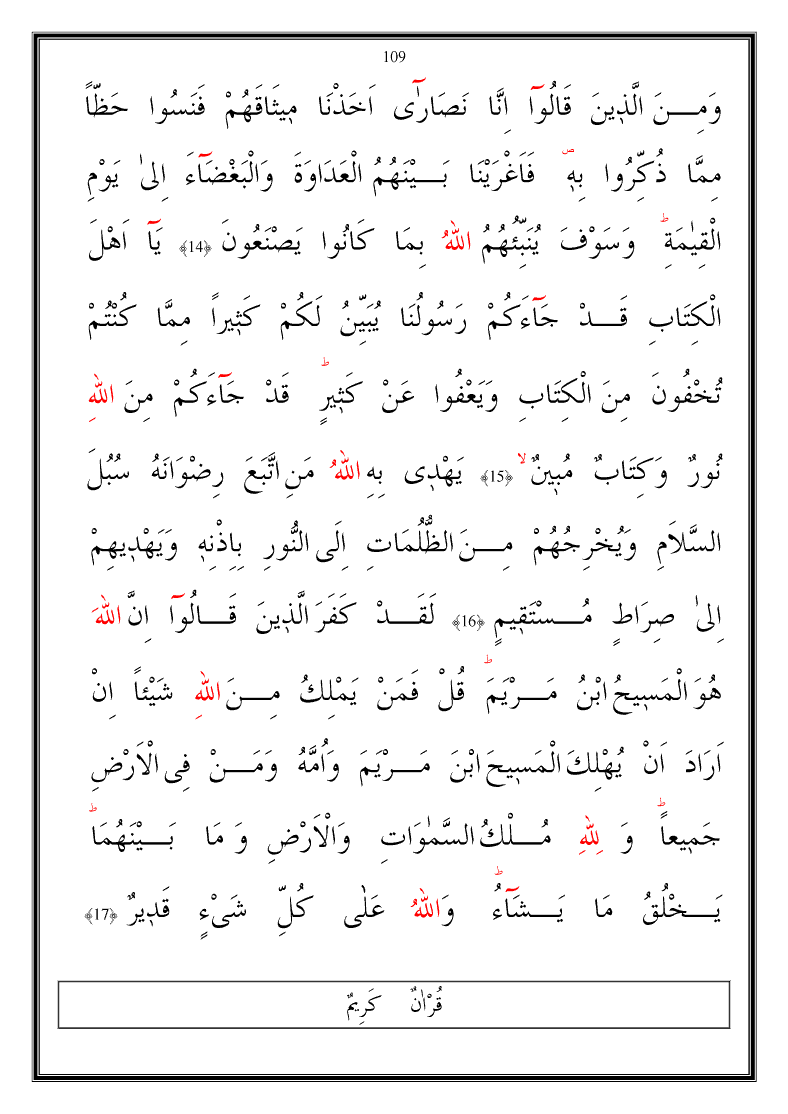 109
وَمِنَ الَّذ۪ينَ قَالُوٓا اِنَّا نَصَارٰٓى اَخَذْنَا م۪يثَاقَهُمْ فَنَسُوا حَظًّا
مِمَّا ذُكِّرُوا بِه۪ۖ فَاَغْرَيْنَا بَيْنَهُمُ الْعَدَاوَةَ وَالْبَغْضَٓاءَ اِلٰى يَوْمِ
الْقِيٰمَةِۜ وَسَوْفَ يُنَبِّئُهُمُ اللّٰهُ بِمَا كَانُوا يَصْنَعُونَ ﴿14﴾ يَٓا اَهْلَ
الْكِتَابِ قَدْ جَٓاءَكُمْ رَسُولُنَا يُبَيِّنُ لَكُمْ كَث۪يراً مِمَّا كُنْتُمْ
تُخْفُونَ مِنَ الْكِتَابِ وَيَعْفُوا عَنْ كَث۪يرٍۜ قَدْ جَٓاءَكُمْ مِنَ اللّٰهِ
نُورٌ وَكِتَابٌ مُب۪ينٌۙ ﴿15﴾ يَهْد۪ى بِهِ اللّٰهُ مَنِ اتَّبَعَ رِضْوَانَهُ سُبُلَ
السَّلَامِ وَيُخْرِجُهُمْ مِنَ الظُّلُمَاتِ اِلَى النُّورِ بِاِذْنِه۪ وَيَهْد۪يهِمْ
اِلٰى صِرَاطٍ مُسْتَق۪يمٍ ﴿16﴾ لَقَدْ كَفَرَ الَّذ۪ينَ قَالُوٓا اِنَّ اللّٰهَ
هُوَ الْمَس۪يحُ ابْنُ مَرْيَمَۜ قُلْ فَمَنْ يَمْلِكُ مِنَ اللّٰهِ شَيْئاً اِنْ
اَرَادَ اَنْ يُهْلِكَ الْمَس۪يحَ ابْنَ مَرْيَمَ وَاُمَّهُ وَمَنْ فِى الْاَرْضِ
جَم۪يعاًۜ وَ لِلّٰهِ مُلْكُ السَّمٰوَاتِ وَالْاَرْضِ وَ مَا بَيْنَهُمَاۜ
يَخْلُقُ مَا يَشَٓاءُۜ وَاللّٰهُ عَلٰى كُلِّ شَىْءٍ قَد۪يرٌ ﴿17﴾
قُرْاٰنٌ كَرِيمٌ